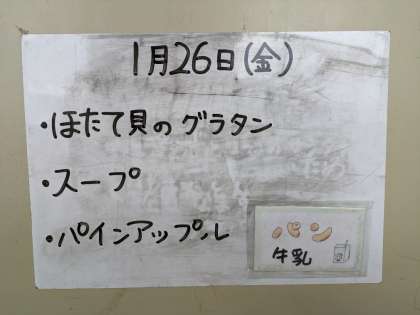 1月26日(金)
・ほたて貝のグラタン
・スープ
・パインアップル
パン
牛乳